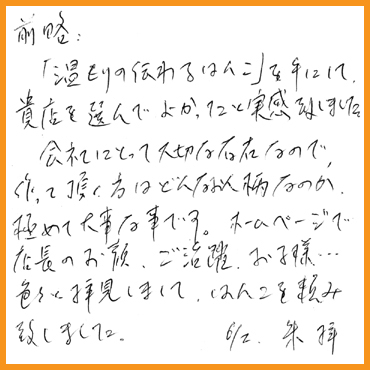 前略:
「温もりの伝わるはんこ」を手にして、
貴店を選んでよかったと実感致しました
会社にとって大切な存在なので、
作って頂く方はどんなお人柄なのか、
極めて大事な事です。ホームページで
店長のお顔、ご活躍、お子様…
色々と拝見しまして、はんこを頼み
致しました。 6/2. 朱 拝